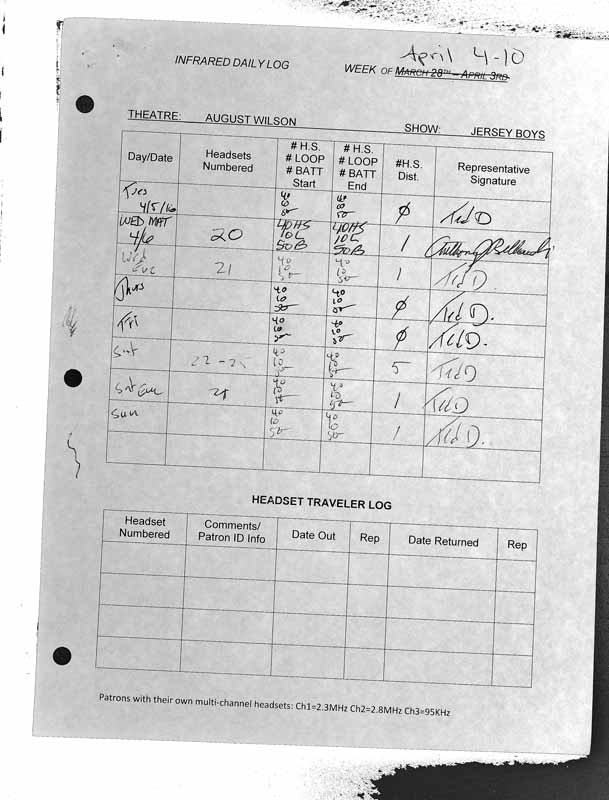 April 4-10
INFRARED DAILY LOG WEEK OF MARCH 28TH – APRIL 3RD
THEATRE: AUGUST WILSON SHOW: JERSEY BOYS
Day/Date Headsets Numbered # H.S. # LOOP # BATT Start # H.S. # LOOP # BATT End #H.S. Dist. Representative Signature
Tues 4/5/16 40 10 50 40 10 50 Ø Ted D
WED MAT 4/6 20 40HS 10L 50B 40HS 10L 50B 1 Anthony J
Wed Eve 21 40 10 50 40 10 50 1 Ted D.
Thurs 40 10 50 40 10 50 Ø Ted D.
Fri 40 10 50 40 10 50 Ø Ted D.
Sat 22-25 40 10 50 40 10 50 5 Ted D
Sat Eve 40 10 50 40 10 50 1 Ted D
Sun 40 10 50 40 10 50 1 Ted D.
HEADSET TRAVELER LOG
Headset Numbered Comments/ Patron ID Info Date Out Rep Date Returned Rep
Patrons with their own multi-channel headsets: Ch1=2.3MHz Ch2=2.8MHz Ch3=95KHz